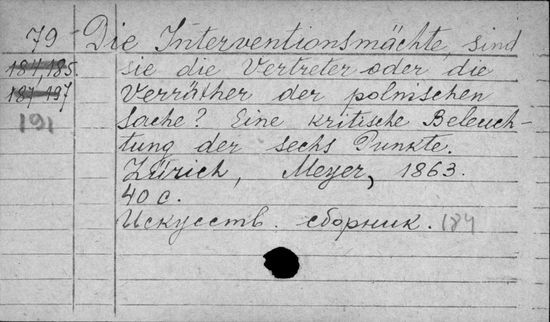 79 Die Interventionsmächte, sind
184,185. sie die Vertreter oder die
187-197 Verräther der polnischen
191 Sache? Eine kritische Beleuch-
tung der sechs Punkte.
Zürich, Meyer, 1863.
40 с.
Искусств. сборник. 184